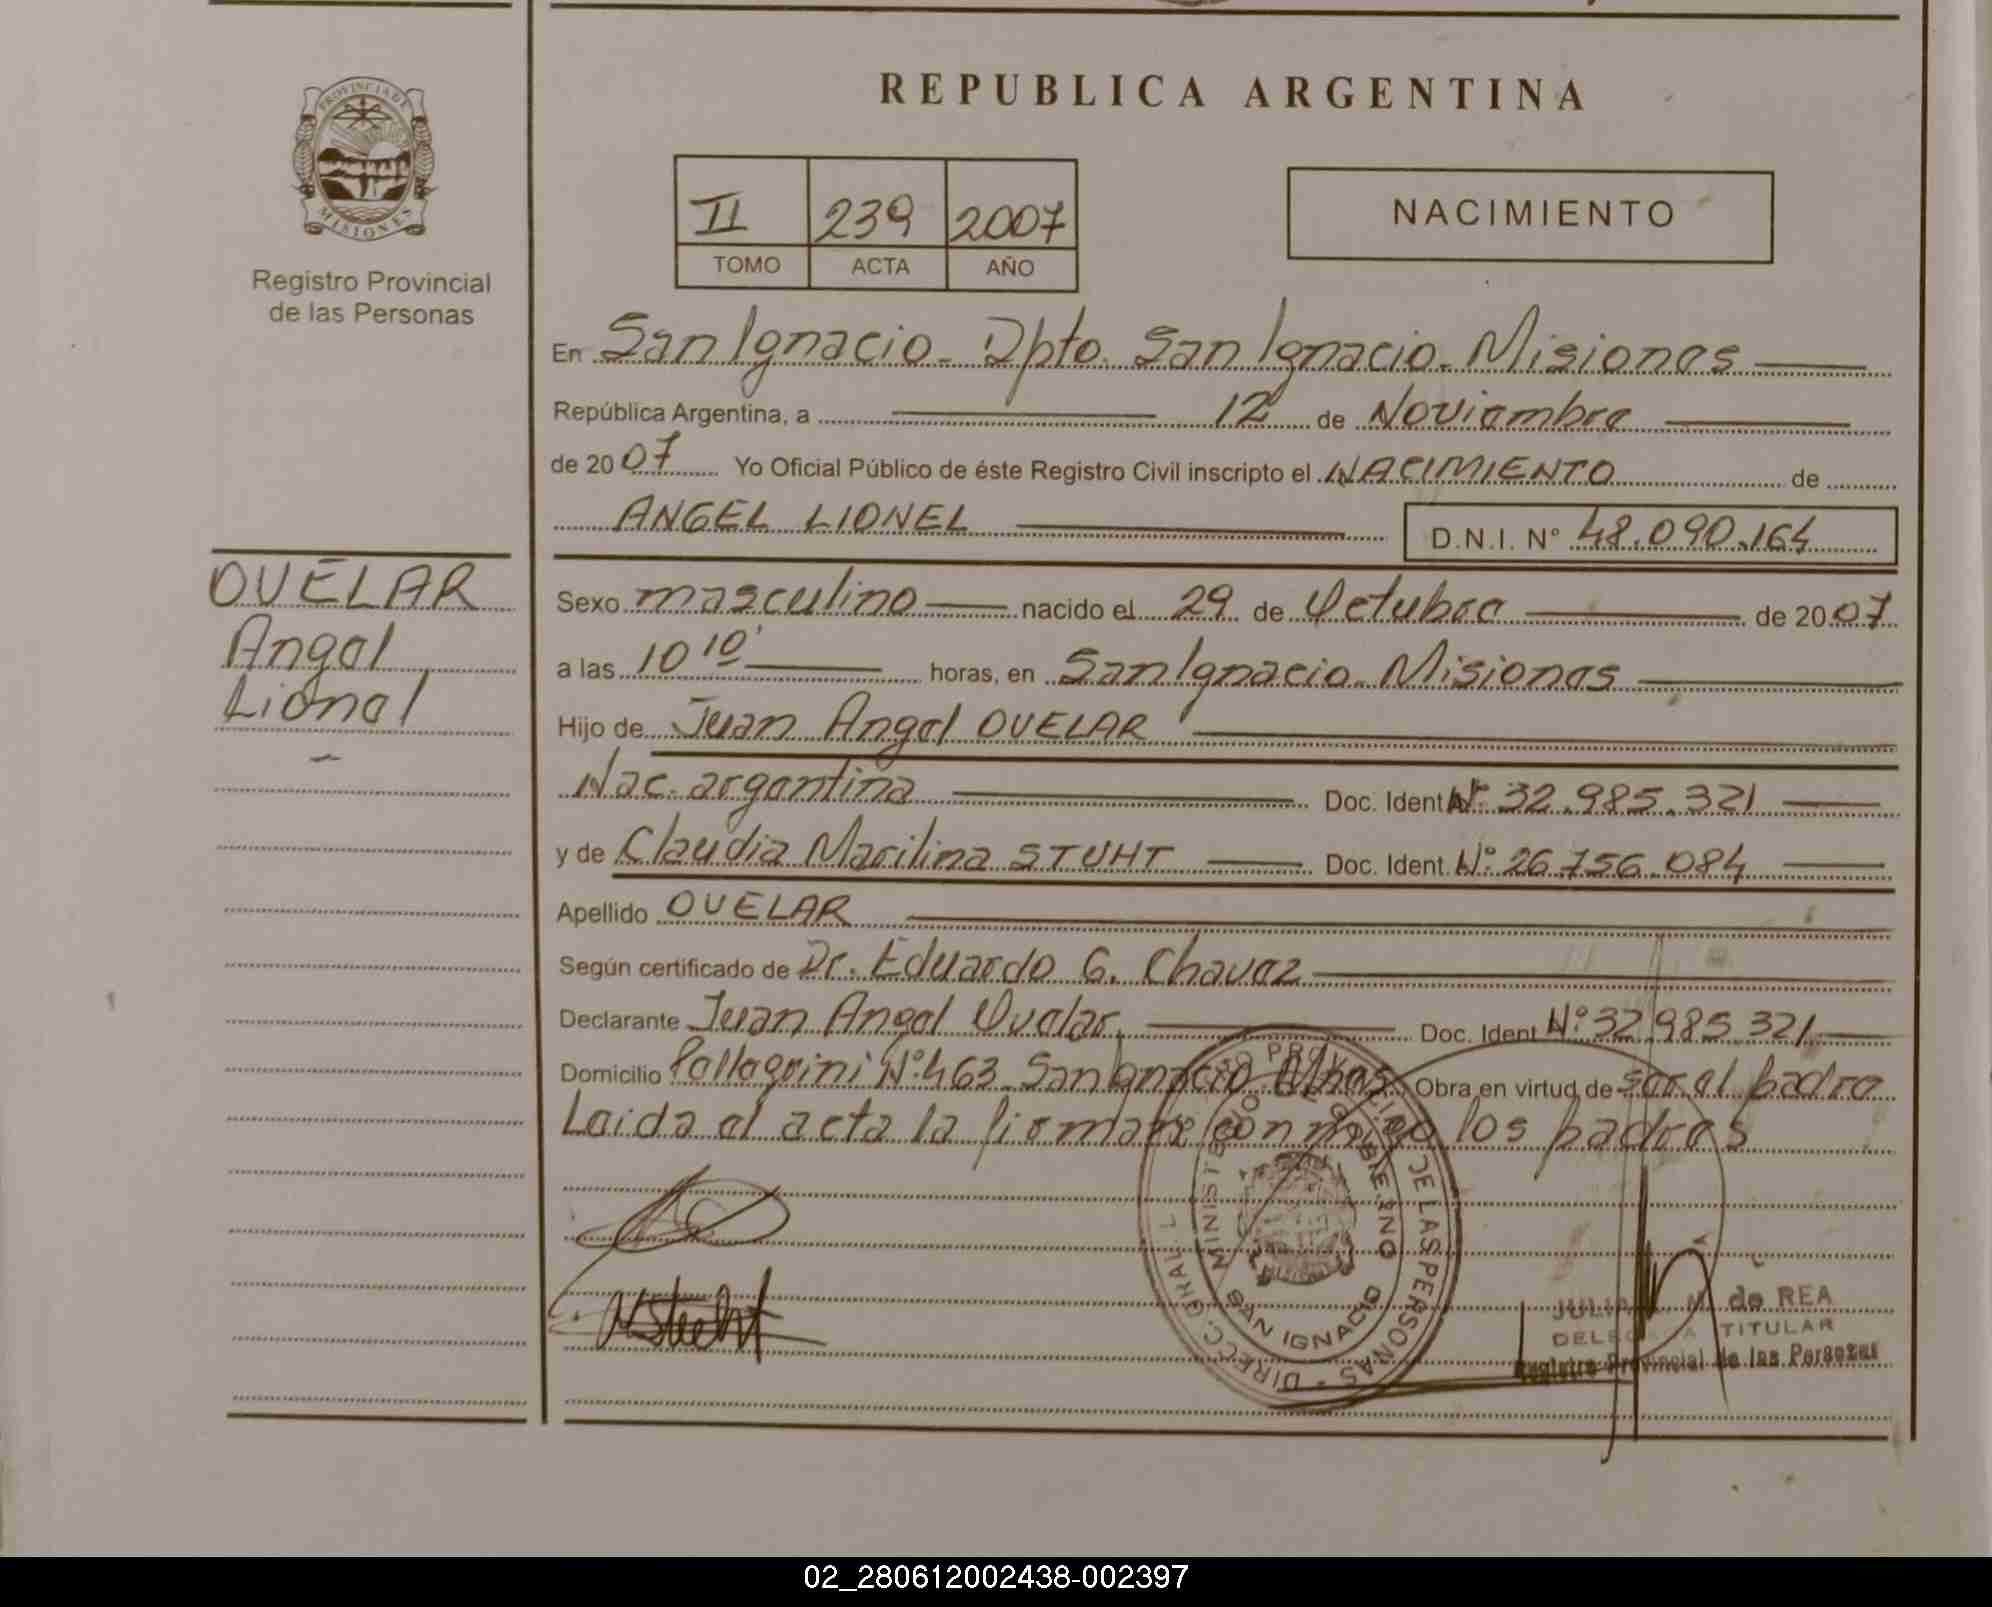 PROVINCIA DE
MISIONES
Registro Provincial
de las Personas
OVELAR
Angel
Lionel
REPUBLICA ARGENTINA
II 239 2007
TOMO ACTA AÑO
NACIMIENTO
En San Ignacio - Dpto. San Ignacio - Misiones
República Argentina, a 12 de Noviembre
de 2007 Yo Oficial Público de éste Registro Civil inscripto el NACIMIENTO de
ANGEL LIONEL D.N.I. Nº 48.090.164
Sexo masculino nacido el 29 de Octubre de 2007
a las 10 10' horas, en San Ignacio - Misiones
Hijo de Juan Angel OVELAR
Nac. argentina Doc. Ident. Nº 32.985.321
y de Claudia Marilina STUHT Doc. Ident. Nº 26.756.084
Apellido OVELAR
Según certificado de Dr. Eduardo G. Chavez
Declarante Juan Angel Ovelar Doc. Ident. Nº 32.985.321
Domicilio Pellegrini Nº 463 San Ignacio Mnes. Obra en virtud de ser el padre
Leida el acta la firman conmigo los padres
REGISTRO PROVINCIAL DE LAS PERSONAS - DIRECC. GRAL.
MINISTERIO DE GOBIERNO
SAN IGNACIO
de REA
DELEGADA TITULAR
Registro Provincial de las Personas
02_280612002438-002397